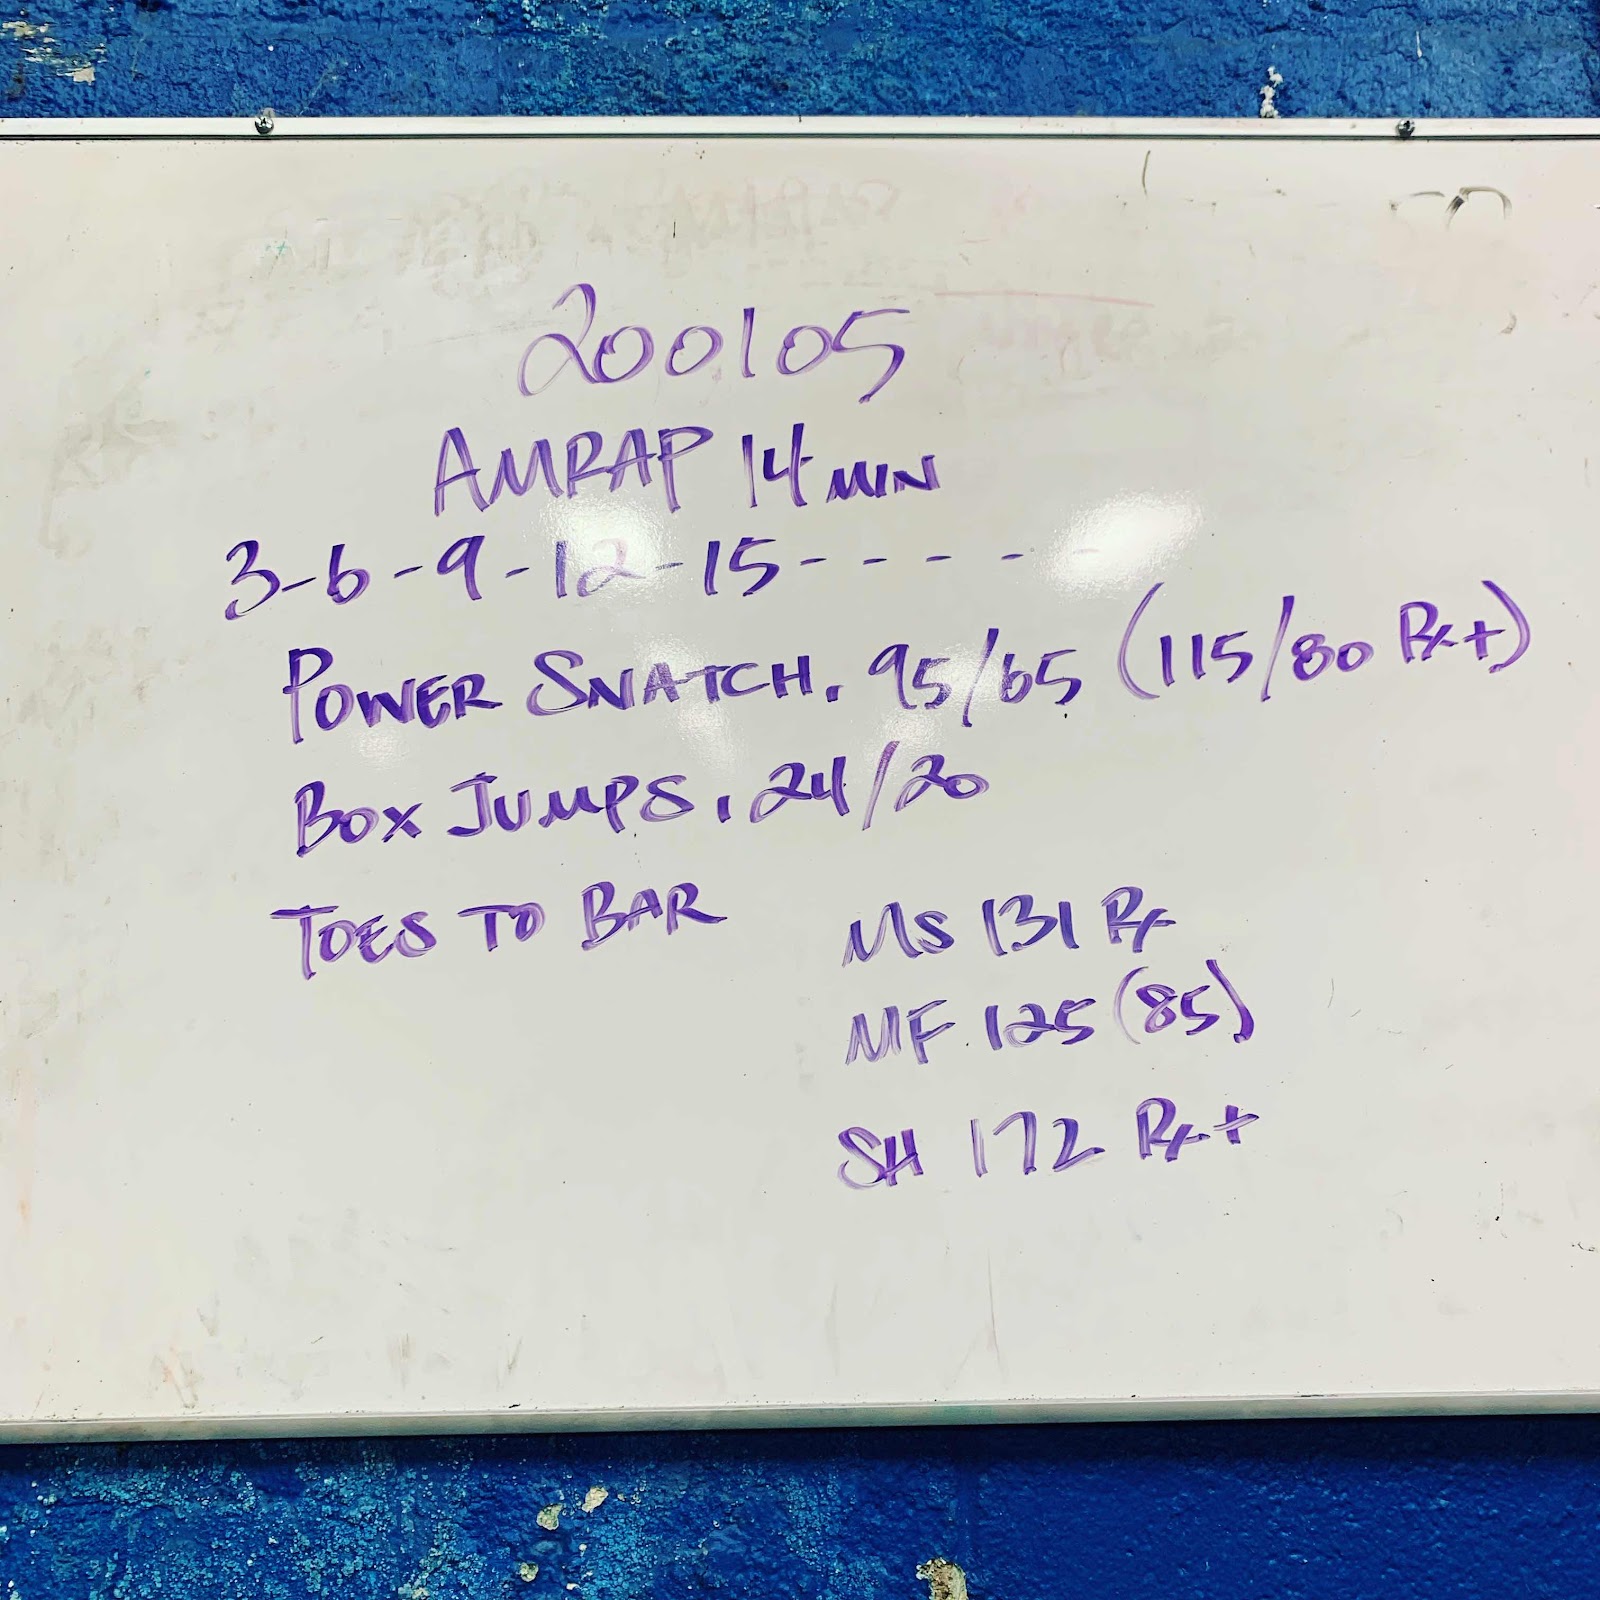 200105
AMRAP 14 MIN
3-6-9-12-15-----
POWER SNATCH. 95/65 (115/80 Rx+)
BOX JUMPS. 24/20
TOES TO BAR
MS 131 Rx
MF 125 (85)
SH 172 Rx+